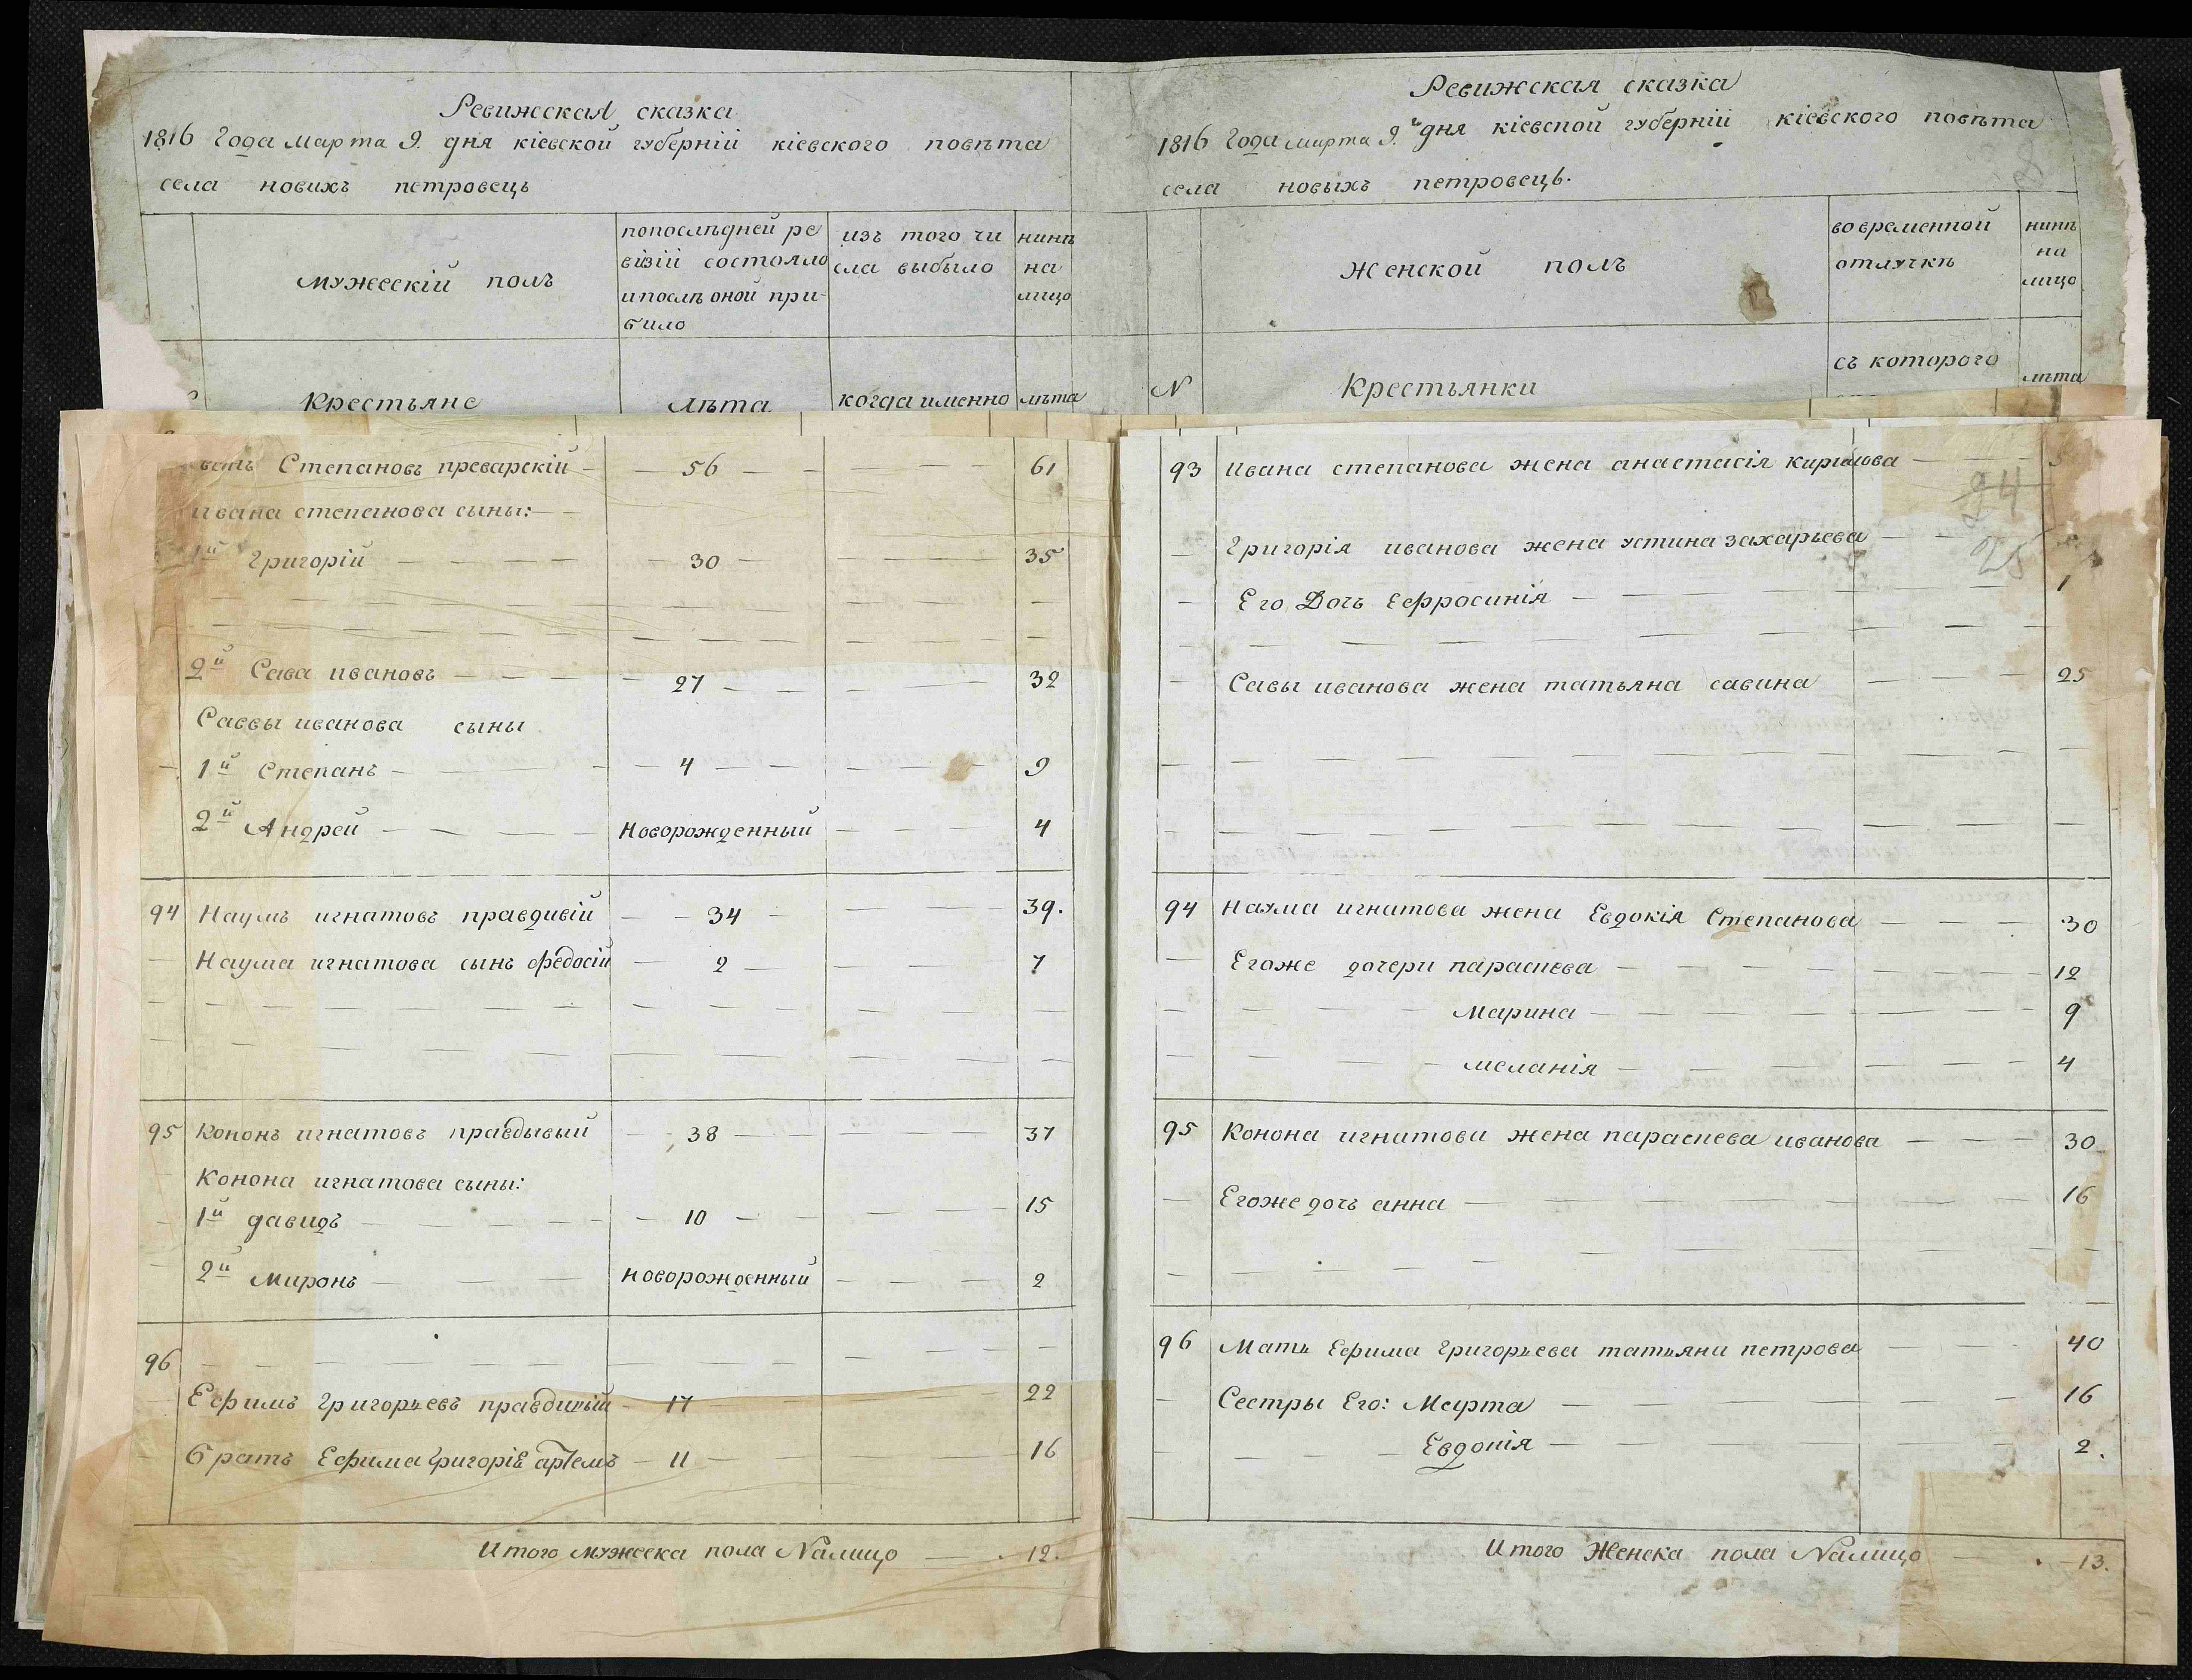 Ревижская сказка
1816 Года марта 9. дня кіевской губерніи кіевского повѣта
села новихъ петровець
мужескій полъ
попослѣдней ре
визіи состояло
ипослѣ оной при-
било
изъ того чи
сла выбыло
нинѣ
на
лицо
Крестьяне
лѣта
когда именно
лѣта
Степановъ преварскій 56 61
ивана степанова сыны:
1й Григорій 30 35
2й Сава ивановъ 27 32
Саввы иванова сыны
1й Степанъ 4 9
2й Андрей новорожденный 4
94 Наумъ игнатовъ правдивій 34 39.
Наума игнатова сынъ Федосій 2 7
95 Кононъ игнатовъ правдывый 38 37
Конона игнатова сыны:
1й давидъ 10 15
2й миронъ новорожденный 2
96
Ефимъ Григорьевъ правдивый 17 22
братъ Ефима Григоріе артемъ 11 16
Итого мужеска пола Налицо 12.
Ревижская сказка
1816 Года марта 9.й дня кіевской губерніи кіевского повѣта
села новыхъ петровець.
женской полъ
во временной
отлучкѣ
нинѣ
на
лицо
N
Крестьянки
съ которого
лѣта
93 Ивана степанова жена анастасія кирилова
24
25
Григорія иванова жена устина захарьева
Его Дочъ Ефросинія 1
Савы иванова жена татьяна савина 25
94 Наума игнатова жена Евдокія Степанова 30
Егоже дочери параскева 12
Марина 9
меланія 4
95 Конона игнатова жена параскева иванова 30
Егоже дочъ анна 16
96 Мать Ефима Григорьева татьяна петрова 40
Сестры Его: Марта 16
Евдокія 2.
Итого Женска пола Налицо 13.